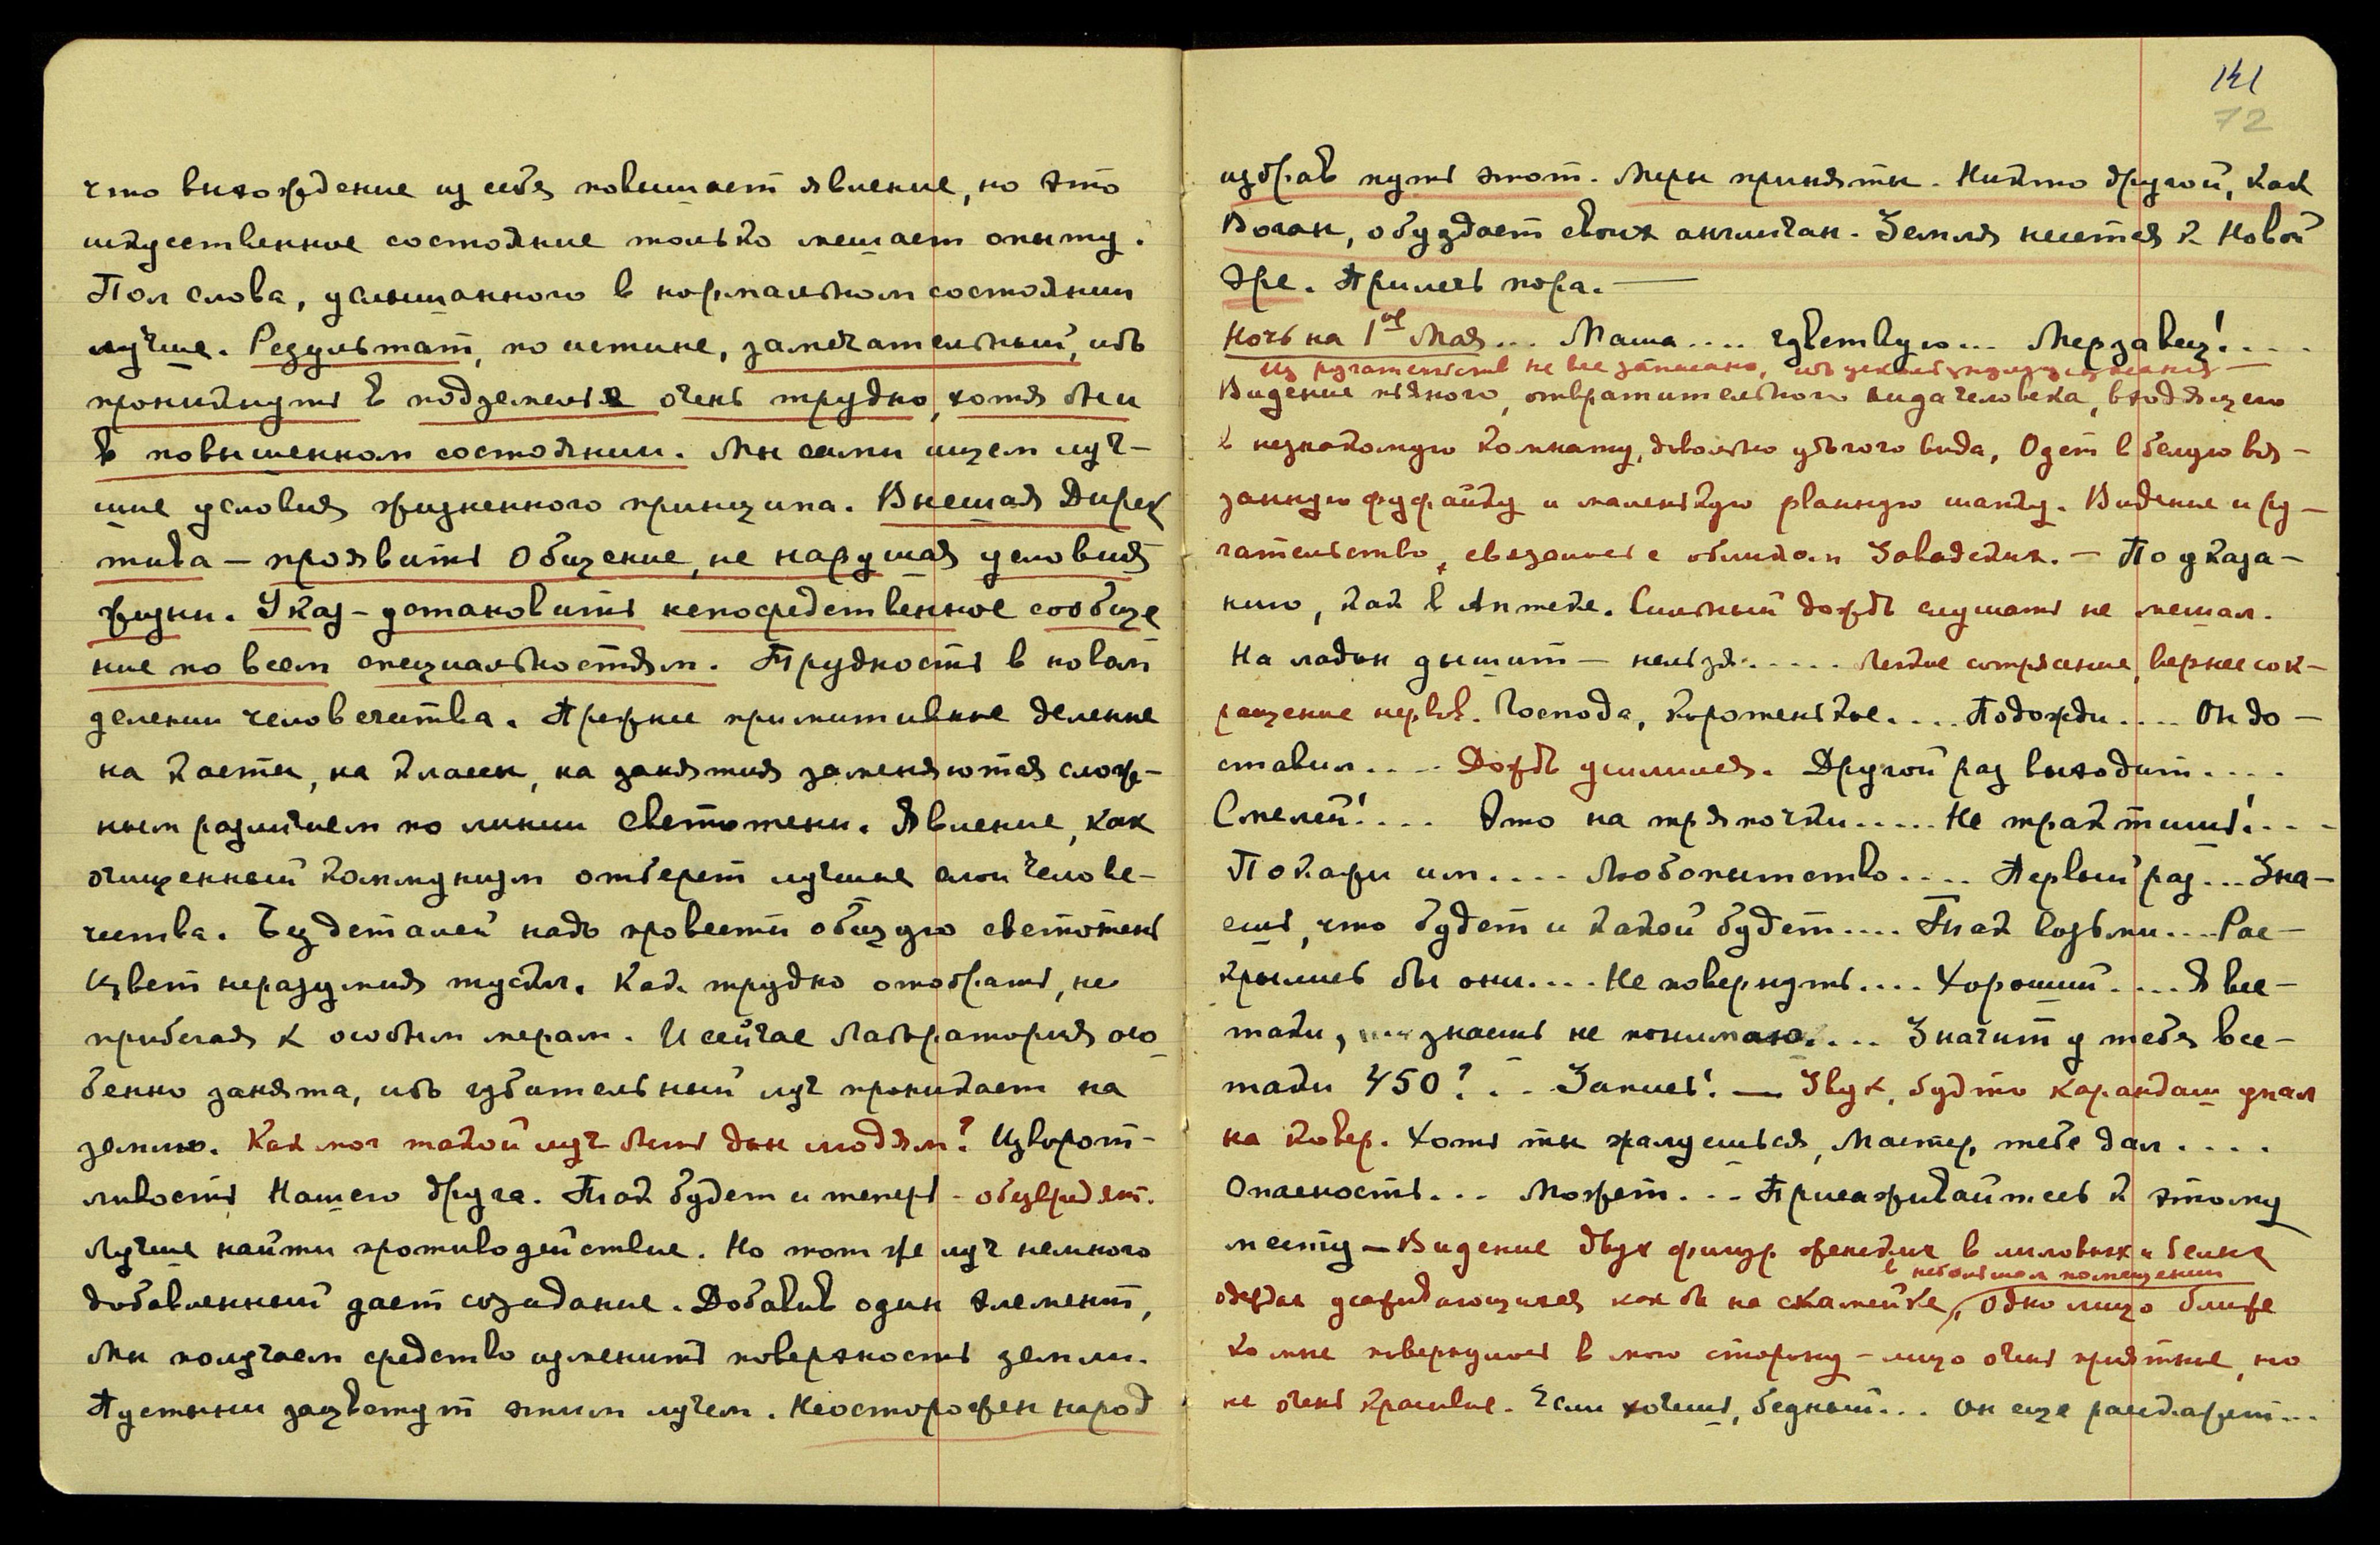 что выхождение из себя повышает явление, но это
искусственное состояние только мешает опыту.
Пол слова, услышанного в нормальном состоянии
лучше. Результат, по истине, замечательный, ибо
проникнуть в подземелья очень трудно, хотя бы и
в повышенном состоянии. Мы сами ищем луч-
шие условия жизненного принципа. Высшая Дирек
тива — проявить Общение, не нарушая условий
жизни. Указ – установить непосредственное сообще
ние по всем специальностям. Трудность в новом
делении человечества. Прежние примитивные деления
на касты, на классы, на занятия заменяются слож-
ным различием по линии светотени. Явление, как
очищенный коммунизм отберет лучшие слои челове-
чества. Без деталей надо провести общую светотень
Цвет неразумия тускл. Как трудно отобрать, не
прибегая к особым мерам. И сейчас Лаборатория осо
бенно занята, ибо губительный луч проникает на
землю. Как мог такой луч быть дан людям? Изворот-
ливость Нашего друга. Так будет и теперь – обезвредят.
Лучше найти противодействие. Но тот же луч немного
добавленный дает созидание. Добавив один элемент,
Мы получаем средство изменить поверхность земли.
Пустыни зацветут этим лучем. Неосторожен народ
141
72
избрав путь этот. Меры приняты. Никто другой, как
Воган, обуздает своих англичан. Земля несется к Новой
Эре. Примечь пора. —
Ночь на 1ое Мая... Маша.... чувствую... Мерзавец!....
Из ругательств не все записано, ибо
Видение пьяного, отвратительного вида человека, входящего
в незнакомую комнату, довольно убогого вида, Одет в белую вя-
занную фуфайку и маленькую рваную шапку. Видение и ру-
гательство, связаны с обликом Завадских. — По указа-
нию, как в Аптеке. Сильный дождь слушать не мешал.
На ладан дышит — нельзя..... Легкое сотрясение, вернее сок-
ращение нервов. Господа, хорошенькое.... Подожди.... Он до-
ставил.... Дождь усилился. Другой раз выходит....
Смелей!.... Это на тряпочки..... Не трактишь!....
Покажи им.... Любопытство.... Первый раз... Зна-
ешь, что будет и какой будет.... Так возьми.... Рас-
крылись бы они.... Не повернуть.... Хороший.... Я все-
таки, знаешь не понимаю.... Значит у тебя все-
таки 450?... Запись! — Звук, будто карандаш упал
на ковер. Хоть ты жалуешься, Мастер, тебе дал....
Опасность... Может... Присаживайтесь к этому
месту — Видение двух фигур женских в лиловых и белых
в небольшом помещении
одеждах усаживающихся как бы на скамейке, Одно лицо ближе
ко мне повернулось в мою сторону – лицо очень приятное, но
не очень красивое. Если хочешь, бедный... Он еще расскажет...